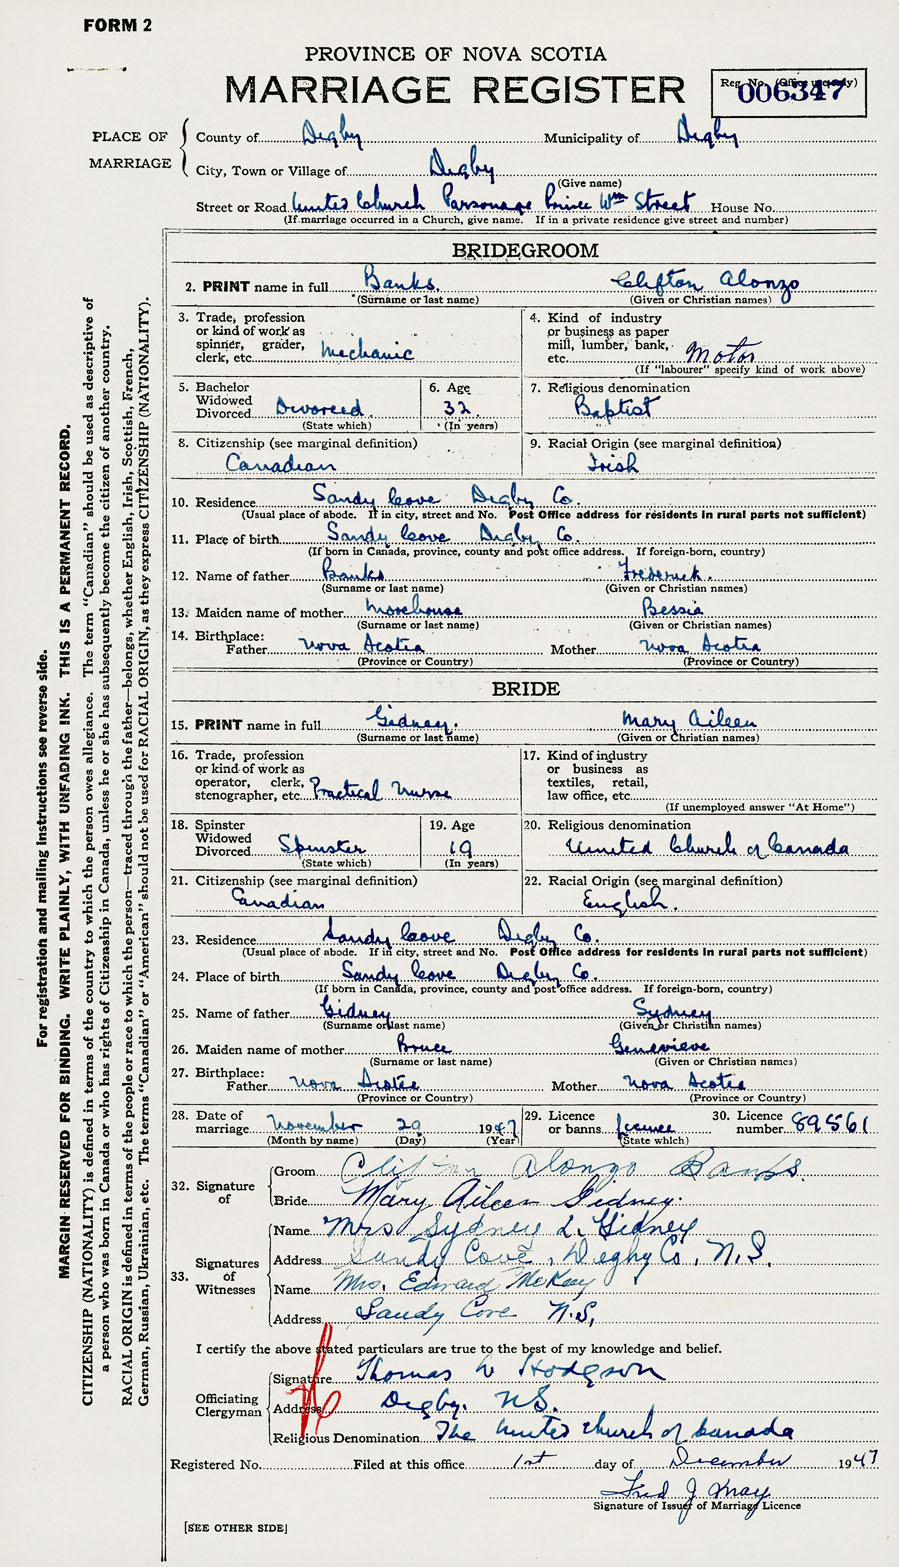 FORM 2
PROVINCE OF NOVA SCOTIA
MARRIAGE REGISTER
Reg. No. (Office use only)
006347
PLACE OF MARRIAGE
County of Digby Municipality of Digby
City, Town or Village of Digby
(Give name)
Street or Road United Church Parsonage Prince Wm Street House No.
(If marriage occurred in a Church, give name. If in a private residence give street and number)
BRIDEGROOM
2. PRINT name in full Banks. Clifton Alonzo
(Surname or last name) (Given or Christian names)
3. Trade, profession or kind of work as spinner, grader, clerk, etc. Mechanic
4. Kind of industry or business as paper mill, lumber, bank, etc. Motor
(If "labourer" specify kind of work above)
5. Bachelor Widowed Divorced Divorced.
(State which)
6. Age 32.
(In years)
7. Religious denomination Baptist
8. Citizenship (see marginal definition) Canadian
9. Racial Origin (see marginal definition) Irish
10. Residence Sandy Cove Digby Co.
(Usual place of abode. If in city, street and No. Post Office address for residents in rural parts not sufficient)
11. Place of birth Sandy Cove Digby Co.
(If born in Canada, province, county and post office address. If foreign-born, country)
12. Name of father Banks Frederick.
(Surname or last name) (Given or Christian names)
13. Maiden name of mother Morehouse Bessie
(Surname or last name) (Given or Christian names)
14. Birthplace:
Father Nova Scotia Mother Nova Scotia
(Province or Country) (Province or Country)
BRIDE
15. PRINT name in full Gidney. Mary Aileen
(Surname or last name) (Given or Christian names)
16. Trade, profession or kind of work as operator, clerk, stenographer, etc. Practical Nurse
17. Kind of industry or business as textiles, retail, law office, etc.
(If unemployed answer "At Home")
18. Spinster Widowed Divorced Spinster
(State which)
19. Age 19
(In years)
20. Religious denomination United Church of Canada
21. Citizenship (see marginal definition) Canadian
22. Racial Origin (see marginal definition) English.
23. Residence Sandy Cove Digby Co.
(Usual place of abode. If in city, street and No. Post Office address for residents in rural parts not sufficient)
24. Place of birth Sandy Cove Digby Co.
(If born in Canada, province, county and post office address. If foreign-born, country)
25. Name of father Gidney Sydney
(Surname or last name) (Given or Christian names)
26. Maiden name of mother Bruce Genevieve
(Surname or last name) (Given or Christian names)
27. Birthplace:
Father Nova Scotia Mother Nova Scotia
(Province or Country) (Province or Country)
28. Date of marriage November 29 1947
(Month by name) (Day) (Year)
29. Licence or banns License
(State which)
30. Licence number 89561
32. Signature of
Groom Clifton Alonzo Banks.
Bride Mary Aileen Gidney.
33. Signatures of Witnesses
Name Mrs Sydney L. Gidney
Address Sandy Cove, Digby Co, N.S.
Name Mrs. Edward McKay
Address Sandy Cove N.S,
I certify the above stated particulars are true to the best of my knowledge and belief.
Officiating Clergyman
Signature Thomas W Hodgson
Address Digby. N.S.
Religious Denomination The United Church of Canada
Registered No. Filed at this office 1st day of December 1947
Fred J May
Signature of Issuer of Marriage Licence
[SEE OTHER SIDE]
For registration and mailing instructions see reverse side.
MARGIN RESERVED FOR BINDING. WRITE PLAINLY, WITH UNFADING INK. THIS IS A PERMANENT RECORD.
CITIZENSHIP (NATIONALITY) is defined in terms of the country to which the person owes allegiance. The term "Canadian" should be used as descriptive of
a person who was born in Canada or who has rights of Citizenship in Canada, unless he or she has subsequently become the citizen of another country.
RACIAL ORIGIN is defined in terms of the people or race to which the person—traced through the father—belongs, whether English, Irish, Scottish, French,
German, Russian, Ukrainian, etc. The terms "Canadian" or "American" should not be used for RACIAL ORIGIN, as they express CITIZENSHIP (NATIONALITY).